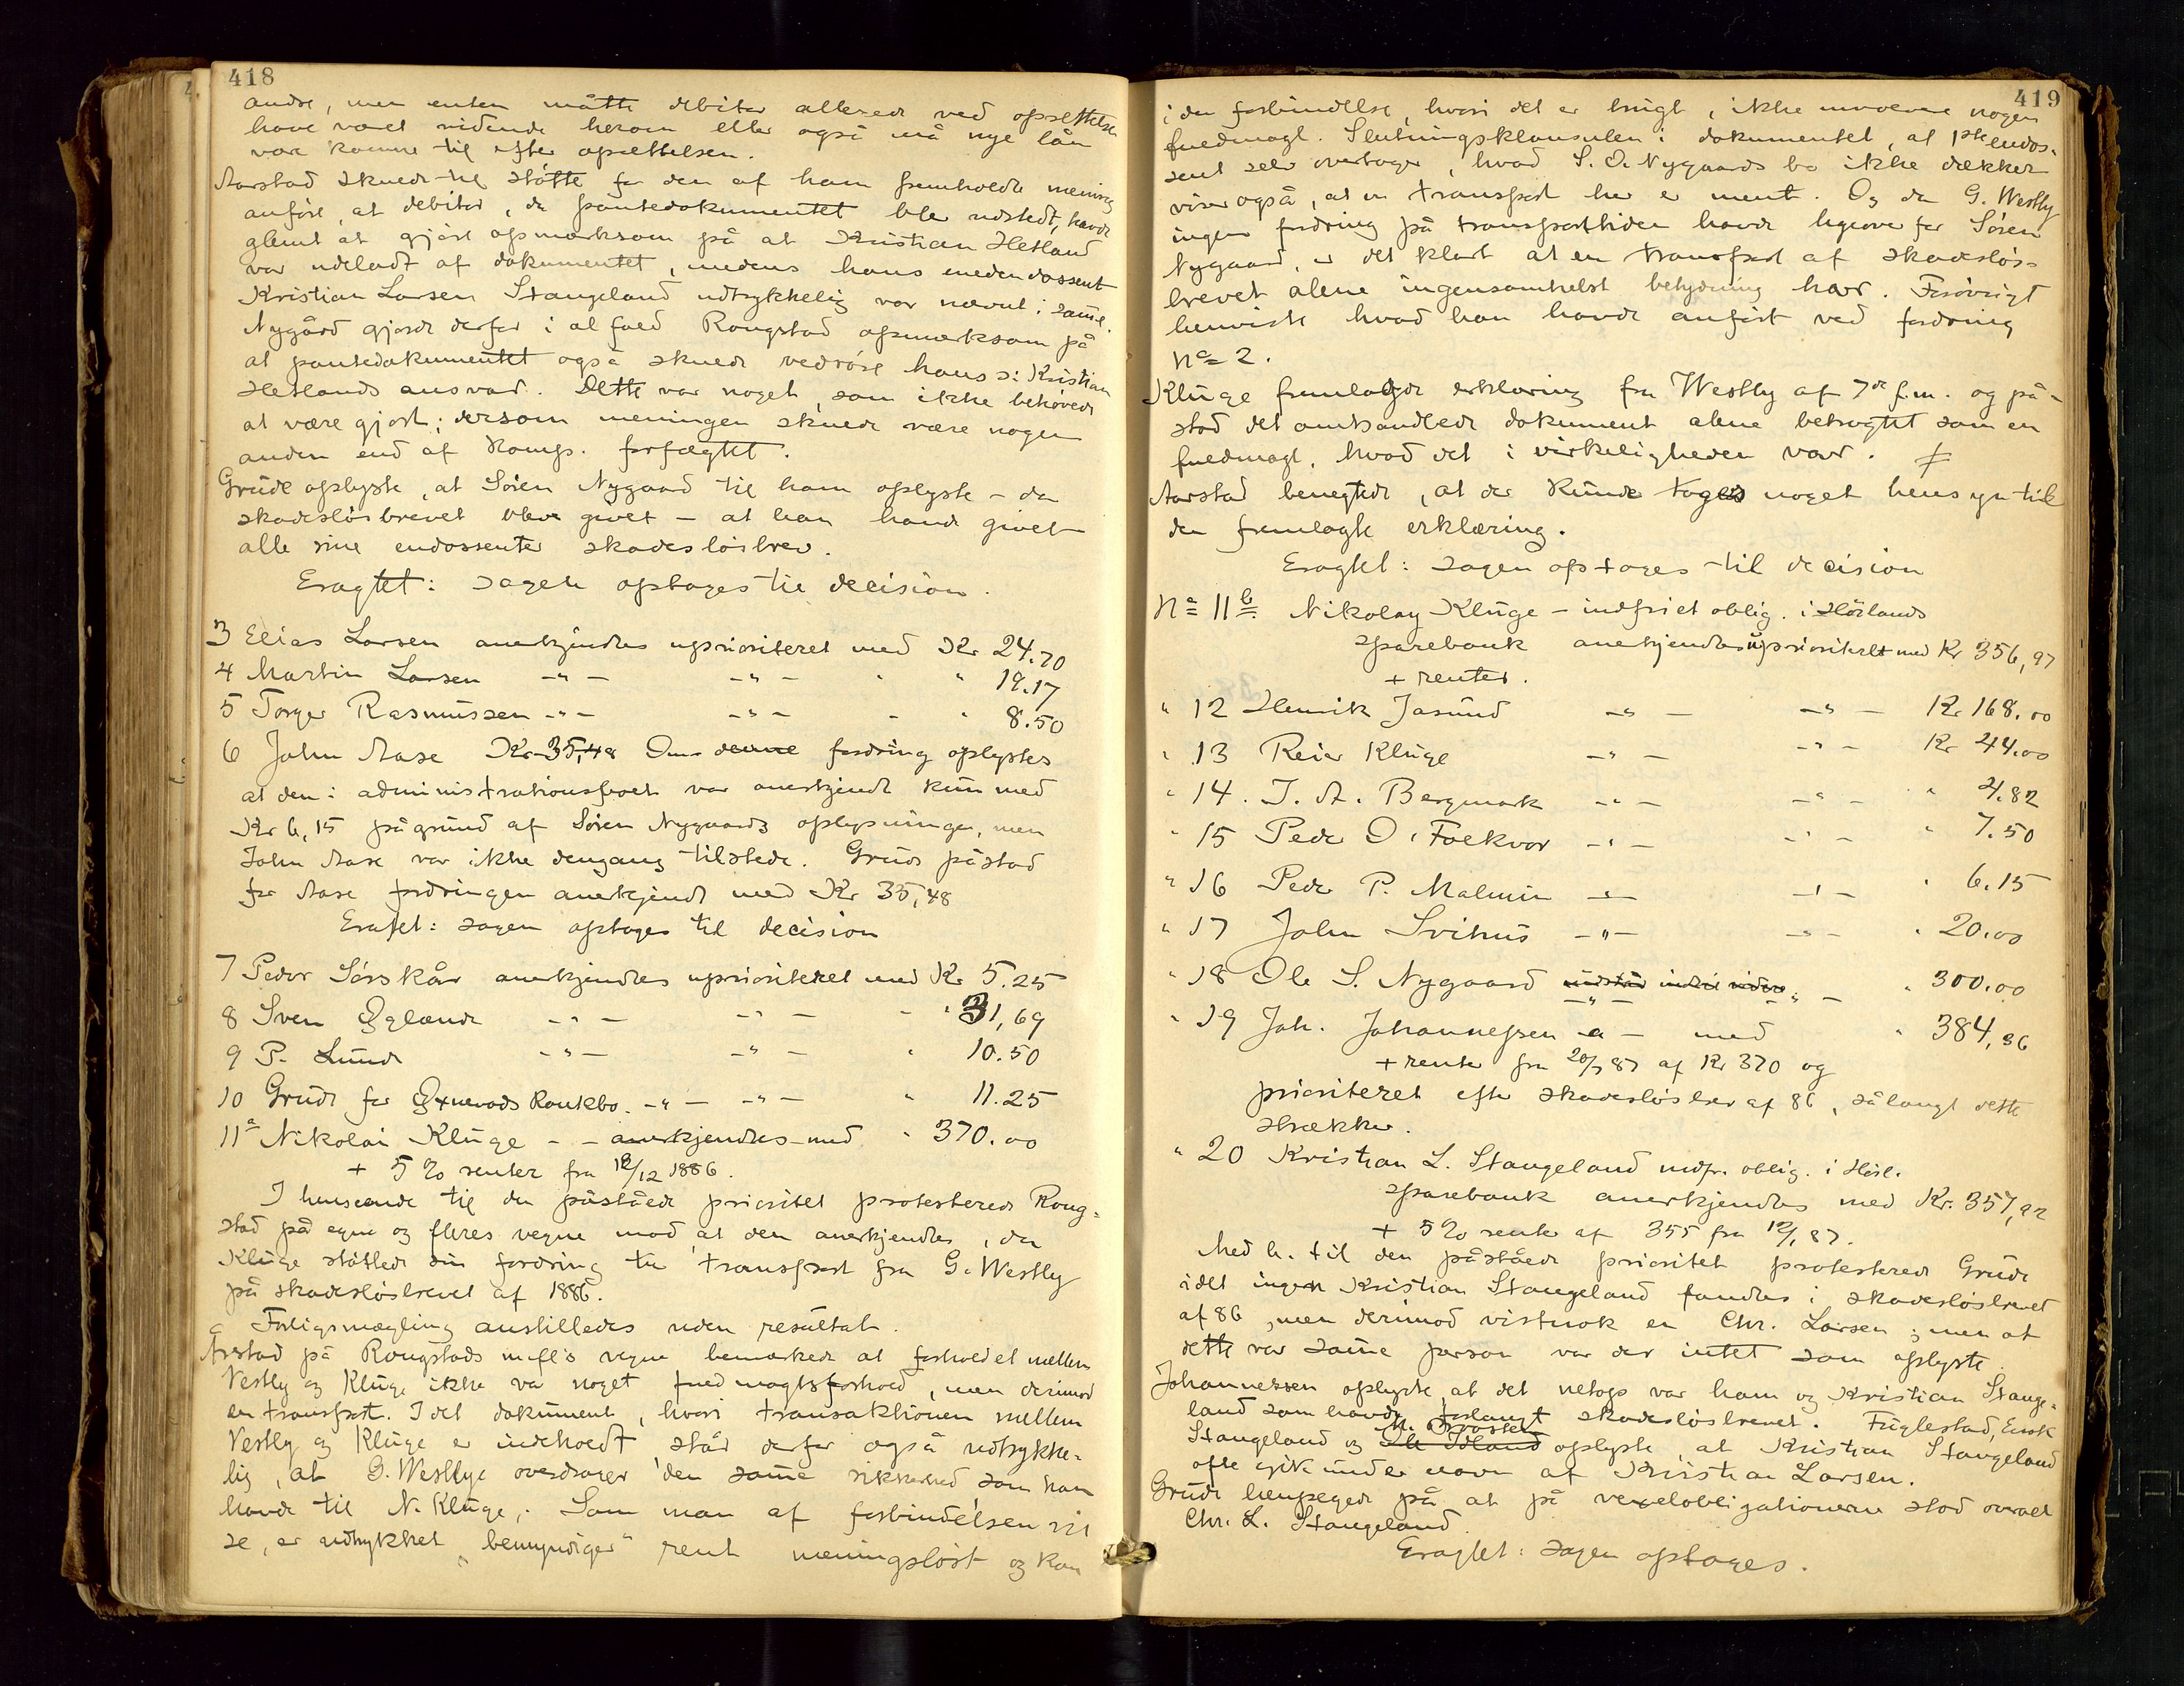 418
andre, men enten måtte debitor allerede ved opsettelsen
have været vidende herom eller også må nye lån
være komne til efter opsettelsen.
Aarstad skulde til støtte for den af ham fremholdte mening
anføre, at debitor, da pantedokumentet blev udstedt, havde
glemt at gjøre opmærksom på at Kristian Hetland
var udeladt af dokumentet, medens hans medendossent
Kristian Larsen Stangeland udtrykkelig var nævnt i samme.
Nygård gjorde derfor i al fald Rongstad opmærksom på
at pantedokumentet også skulde vedrøre hans ɔ: Kristian
Hetlands ansvar. Dette var noget, som ikke behøvede
at være gjort, dersom meningen skulde være nogen
anden end af Komp. forfægtet.
Grude oplyste, at Søren Nygaard til ham oplyste – da
skadesløsbrevet blev givet – at han havde givet
alle sine endossenter skadesløsbrev.
Eragtet: sagen optages til decision.
3 Elias Larsen anerkjendtes uprioriteret med Kr 24.70
4 Martin Larsen -"- -"- " " 19.17
5 Torger Rasmussen -"- -"- - " 8.50
6 John Aase Kr 35,48 Om denne fordring oplystes
at den i administrationsboet var anerkjendt kun med
Kr 6,15 på grund af Søren Nygaards oplysninger, men
John Aase var ikke dengang tilstede. Grude påstod
for Aase fordringen anerkjendt med Kr 35,48
Eragtet: sagen optages til decision
7 Peder Sørskår anerkjendtes uprioriteret med Kr 5.25
8 Sven Øglænd -"- -"- - " 31,69
9 P. Lunde -"- -"- " 10.50
10 Grude for Øxnevads Konkbo. -"- -"- " 11.25
11a Nikolai Kluge - - anerkjendtes med " 370.00
+ 5 % renter fra 18/12 1886.
I henseende til den påståede prioritet protesterede Rong-
stad på egne og fleres vegne mod at den anerkjendtes, da
Kluge støttede sin fordring til transport fra G. Westly
på skadesløsbrevet af 1886.
Forligsmægling anstilledes uden resultat.
Arstad på Rongstads m.fl's vegne bemærkede at forholdet mellem
Vestly og Kluge ikke var noget fuldmagtsforhold, men derimod
en transport. I det dokument, hvori transaktionen mellem
Vestly og Kluge er indeholdt står derfor også udtrykke-
lig, at G. Westlye overdrager den samme sikkerhed som han
havde til N. Kluge; Som man af forbindelsen vil
se, er udtrykket "bemyndiger" rent meningsløst og kan
419
i den forbindelse, hvori det er brugt, ikke involvere nogen
fuldmagt. Slutningsklausulen i dokumentet, at 1ste endos-
sent selv overtager, hvad S. O. Nygaards bo ikke dækker
viser også, at en transport her er ment. Og da G. Westly
ingen fordring på transporttiden havde ligeoverfor Søren
Nygaard, er det klart at en transport af skadesløs-
brevet alene ingensomhelst betydning har. Forøvrigt
henviste hvad han havde anført ved fordring
No 2.
Kluge fremlagde erklæring fra Westly af 7de f.m. og på-
stod det omhandlede dokument alene betragtet som en
fuldmagt, hvad det i virkeligheden var. ≠
Aarstad benegtede, at der kunde tages noget hensyn til
den fremlagte erklæring.
Eragtet: sagen optages til decision
No 11b Nikolay Kluge – indfriet oblig. i Hörlands
sparebank anerkjendtes uprioriteret med Kr 356,97
+ renter.
" 12 Henrik Jasund -"- -"- Kr 168.00
" 13 Reier Kluge -"- -"- Kr 44.00
" 14. J. A. Bergmark -"- -"- " 4.82
" 15 Peder O. Folkvor -"- -"- " 7.50
" 16 Peder P. Malmin -"- -"- " 6.15
" 17 John Svihus -"- -"- " 20.00
" 18 Ole S. Nygaard -"- -"- " 300.00
" 19 Joh. Johannessen -"- med " 384,86
+ renter fra 20/7 87 af Kr 370 og
prioriteret efter skadesløsbrev af 86, sålangt dette
strækker.
" 20 Kristian L. Stangeland indfr. oblig. i Høil.
sparebank anerkjendtes med Kr. 357,92
+ 5 % rente af 355 fra 12/1 87.
Med h. til den påståede prioritet protesterede Grude
idet ingen Kristian Stangeland fandtes i skadesløsbrevet
af 86, men derimod vistnok en Chr. Larsen; men at
dette var samme person var der intet som oplyste.
Johannessen oplyste, at det netop var ham og Kristian Stange-
land som havde forlangt skadesløsbrevet. Fuglestad, Enok
Stangeland og Ole Idland oplyste, at Kristian Stangeland
ofte gik under navn af Kristian Larsen.
Grude henpegede på at på vexelobligationerne stod overalt
Chr. L. Stangeland.
Eragtet: sagen optages.